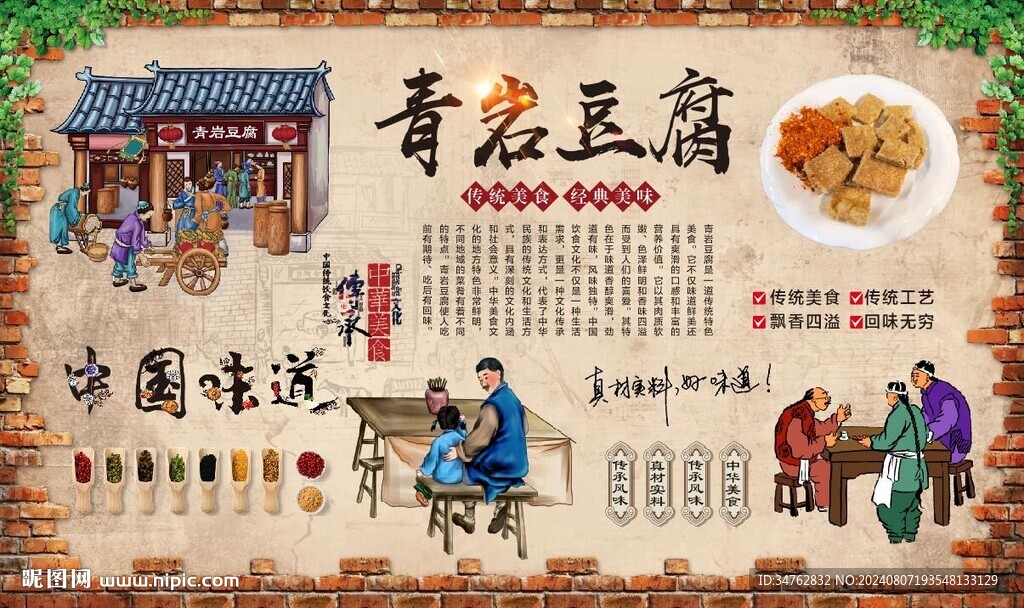 青岩豆腐
青岩豆腐
传统美食 经典美味
青岩豆腐是一道传统特色
美食。它不仅味道鲜美还
具有爽滑的口感和丰富的
营养价值。它以其肉质软
嫩、色泽鲜明和香味四溢
而受到人们的喜爱。其特
色在于味道香醇爽滑，劲
道有味，风味独特。中国
饮食文化不仅是一种生活
需求，更是一种文化传承
和表达方式，代表了中华
民族的传统文化和生活方
式，具有深刻的文化内涵
和社会意义。中华美食文
化的地方特色非常鲜明，
不同地域的菜肴有着不同
的特点。青岩豆腐使人吃
前有期待、吃后有回味。
中国传统饮食文化
传承
中華美食
文化
传统美食
传统工艺
飘香四溢
回味无穷
中国味道
真材实料,好味道!
传承风味
真材实料
传承风味
中华美食
昵图网 www.nipic.com
ID:34762832 NO:20240807193548133129